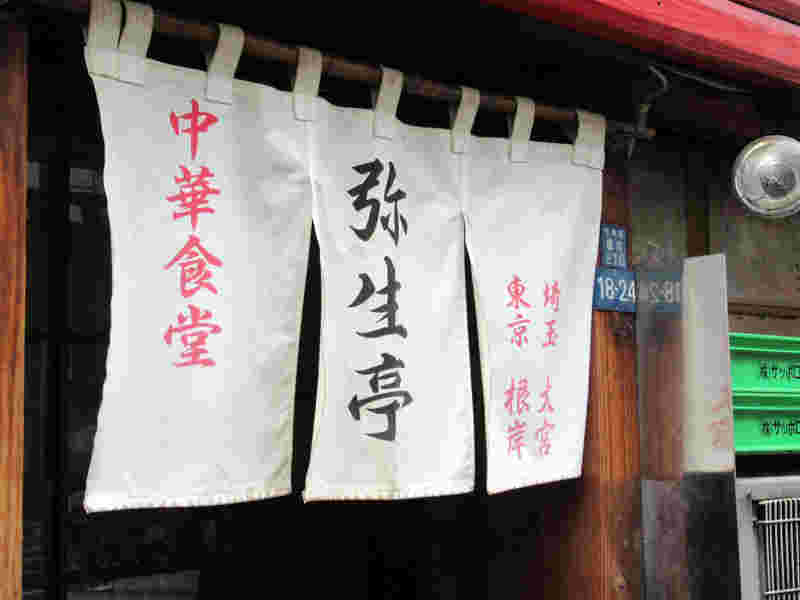 中華食堂
弥生亭
埼玉 大宮
東京 根岸
18-24
㈱サッポロ
㈱サッポロ